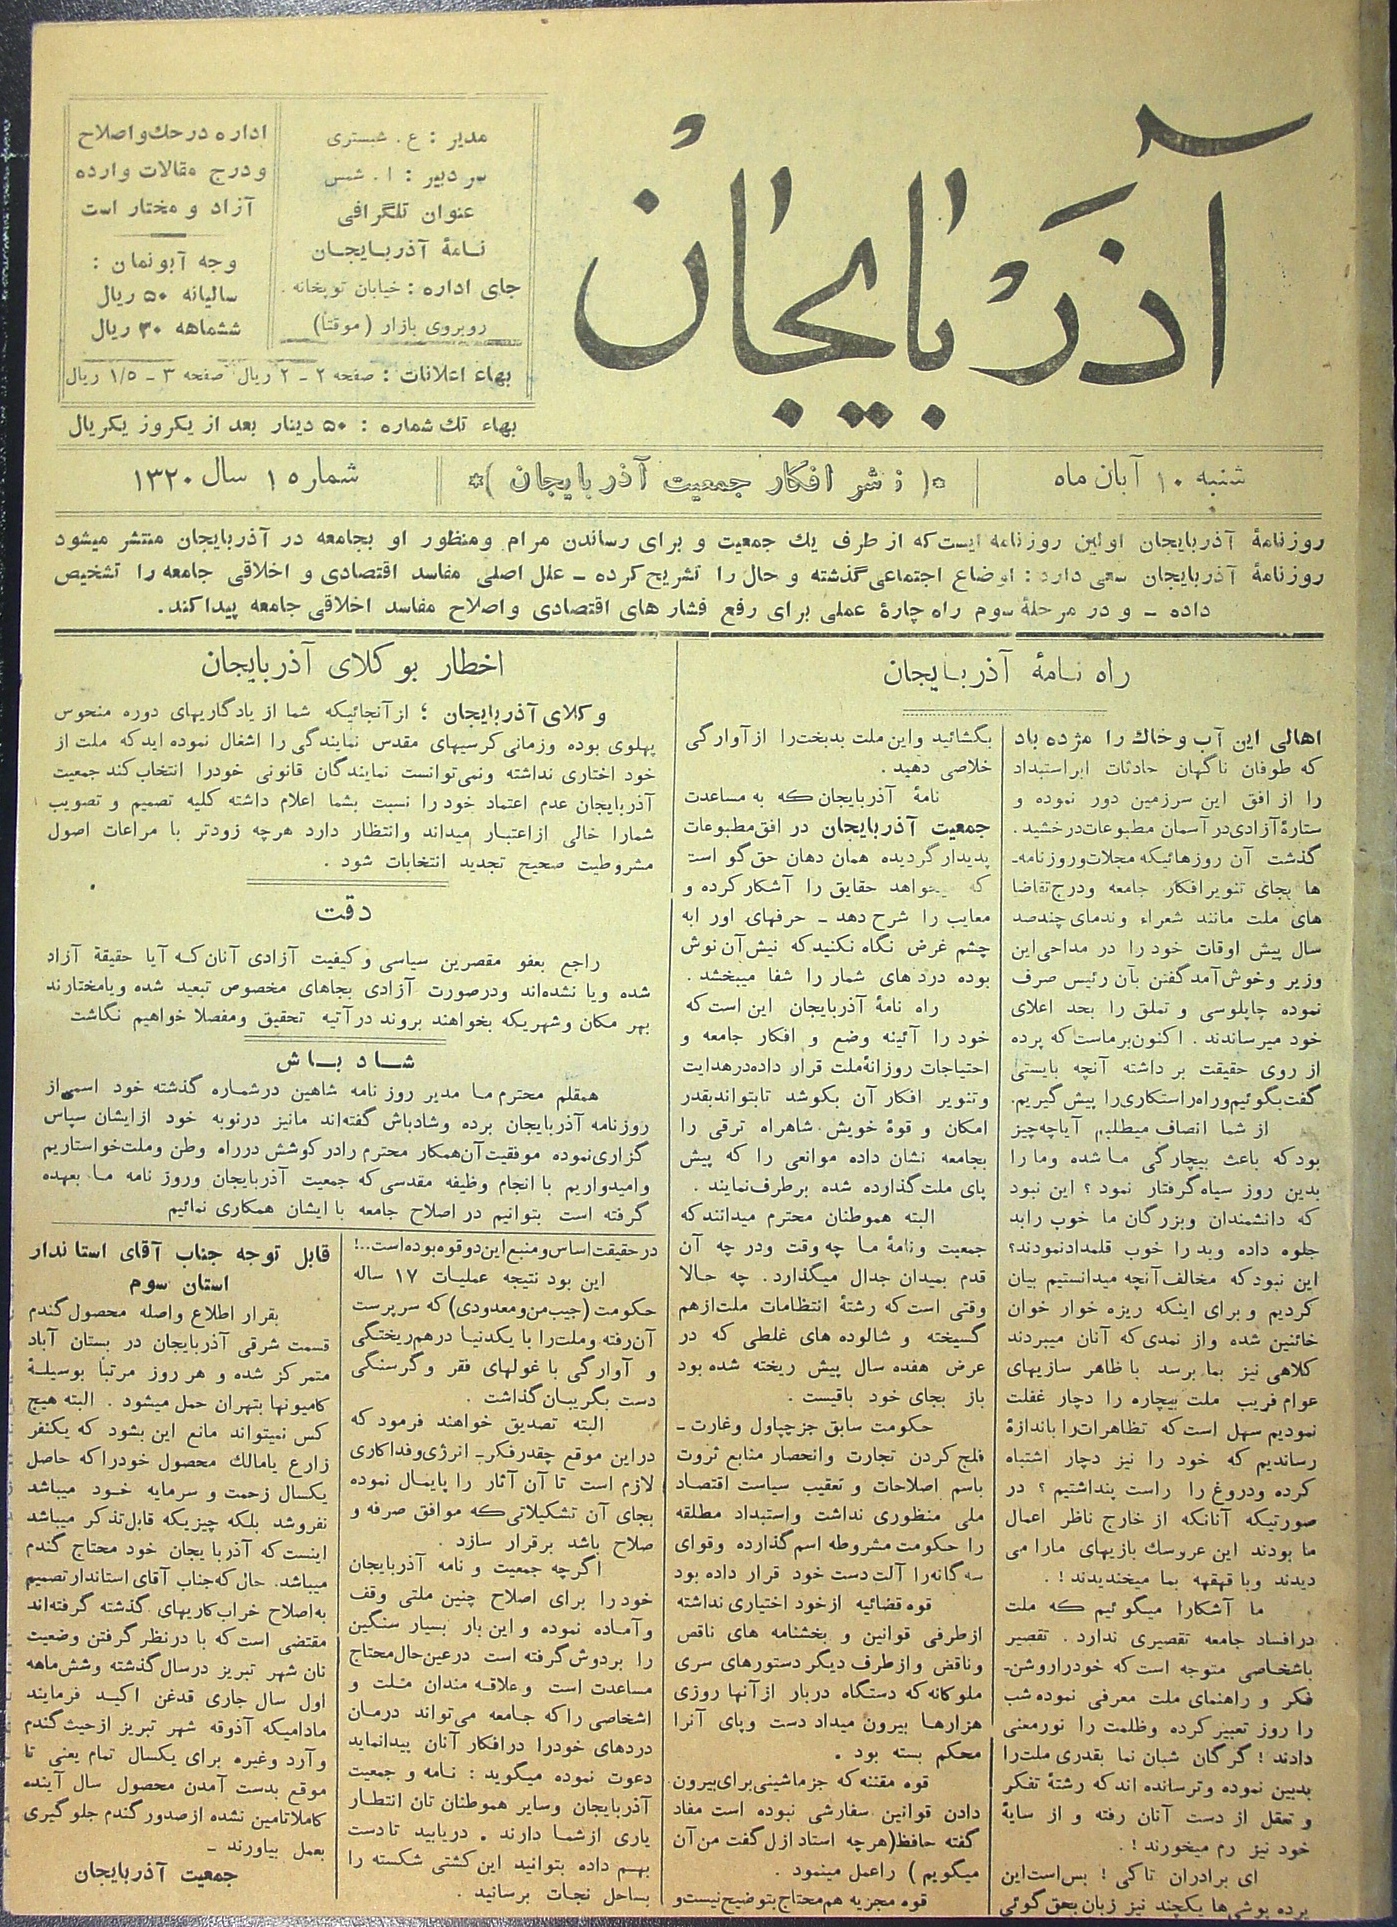 آذربایجان
مدیر : ع. شبستری
سردبیر : ا. شمس
عنوان تلگرافی
نامهٔ آذربایجان
جای اداره : خیابان توپخانه .
روبروی بازار (موقتا)
اداره در حك و اصلاح
و درج مقالات وارده
آزاد و مختار است
وجه آبونمان :
سالیانه ۵۰ ریال
ششماهه ۳۰ ریال
بهاء اعلانات : صفحه ۲ - ۲ ریال صفحه ۳ - ۱/۵ ریال
بهاء تك شماره : ۵۰ دینار بعد از یکروز یکریال
شنبه ۱۰ آبان ماه
*( نشر افکار جمعیت آذربایجان )*
شماره ۱ سال ۱۳۲۰
روزنامهٔ آذربایجان اولین روزنامه ایست که از طرف یك جمعیت و برای رساندن مرام ومنظور او بجامعه در آذربایجان منتشر میشود
روزنامهٔ آذربایجان سعی دارد : اوضاع اجتماعی گذشته و حال را تشریح کرده - علل اصلی مفاسد اقتصادی و اخلاقی جامعه را تشخیص
داده - و در مرحلهٔ سوم راه چارهٔ عملی برای رفع فشار های اقتصادی و اصلاح مفاسد اخلاقی جامعه پیدا کند .
راه نامهٔ آذربایجان
اهالی این آب و خاك را مژده باد
که طوفان ناگهان حادثات ابر استبداد
را از افق این سرزمین دور نموده و
ستارهٔ آزادی در آسمان مطبوعات درخشید .
گذشت آن روزهائیکه مجلات و روزنامه-
ها بجای تنویر افکار جامعه ودرج تقاضا
های ملت مانند شعراء وندمای چندصد
سال پیش اوقات خود را در مداحی این
وزیر وخوش آمد گفتن بآن رئیس صرف
نموده چاپلوسی و تملق را بحد اعلای
خود میرساندند . اکنون برماست که پرده
از روی حقیقت برداشته آنچه بایستی
گفت بگوئیم و راه راستکاری را پیش گیریم.
از شما انصاف میطلبم آیا چه چیز
بود که باعث بیچارگی ما شده و ما را
بدین روز سیاه گرفتار نمود ؟ این نبود
که دانشمندان وبزرگان ما خوب رابد
جلوه داده وبد را خوب قلمداد نمودند؟
این نبود که مخالف آنچه میدانستیم بیان
کردیم و برای اینکه ریزه خوار خوان
خائنین شده و از نمدی که آنان میبردند
کلاهی نیز بما برسد با ظاهر سازیهای
عوام فریب ملت بیچاره را دچار غفلت
نمودیم سهل است که تظاهرات را باندازهٔ
رساندیم که خود را نیز دچار اشتباه
کرده ودروغ را راست پنداشتیم ؟ در
صورتیکه آنانکه از خارج ناظر اعمال
ما بودند این عروسك بازیهای مارا می
دیدند وبا قهقهه بما میخندیدند ! .
ما آشکارا میگوئیم که ملت
در افساد جامعه تقصیری ندارد . تقصیر
باشخاصی متوجه است که خود را روشن-
فکر و راهنمای ملت معرفی نموده شب
را روز تعبیر کرده وظلمت را نور معنی
دادند ! گرگان شبان نما بقدری ملت را
بدبین نموده و ترسانده اند که رشتهٔ تفکر
و تعقل از دست آنان رفته و از سایهٔ
خود نیز رم میخورند ! .
ای برادران تا کی ! بس است این
پرده پوشی ها یکچند نیز زبان بحق گوئی
بگشائید و این ملت بدبخت را از آوارگی
خلاصی دهید .
نامهٔ آذربایجان که به مساعدت
جمعیت آذربایجان در افق مطبوعات
پدیدار گردیده همان دهان حق گو است
که میخواهد حقایق را آشکار کرده و
معایب را شرح دهد - حرفهای اورا به
چشم غرض نگاه نکنید که نیش آن نوش
بوده درد های شمار را شفا میبخشد .
راه نامهٔ آذربایجان این است که
خود را آئینه وضع و افکار جامعه و
احتیاجات روزانهٔ ملت قرار داده در هدایت
و تنویر افکار آن بکوشد تا بتواند بقدر
امکان و قوهٔ خویش شاهراه ترقی را
بجامعه نشان داده موانعی را که پیش
پای ملت گذارده شده برطرف نمایند .
البته هموطنان محترم میدانند که
جمعیت ونامهٔ ما چه وقت ودر چه آن
قدم بمیدان جدال میگذارد . چه حالا
وقتی است که رشتهٔ انتظامات ملت از هم
گسیخته و شالوده های غلطی که در
عرض هفده سال پیش ریخته شده بود
باز بجای خود باقیست .
حکومت سابق جز چپاول وغارت -
فلج کردن تجارت وانحصار منابع ثروت
باسم اصلاحات و تعقیب سیاست اقتصاد
ملی منظوری نداشت واستبداد مطلقه
را حکومت مشروطه اسم گذارده وقوای
سه گانه را آلت دست خود قرار داده بود
قوه قضائیه از خود اختیاری نداشته
از طرفی قوانین و بخشنامه های ناقص
وناقض و از طرف دیگر دستورهای سری
ملوکانه که دستگاه دربار از آنها روزی
هزارها بیرون میداد دست وپای آنرا
محکم بسته بود .
قوه مقننه که جز ماشینی برای بیرون
دادن قوانین سفارشی نبوده است مفاد
گفته حافظ (هرچه استاد ازل گفت من آن
میگویم ) راعمل مینمود .
قوه مجزیه هم محتاج بتوضیح نیست و
اخطار بوکلای آذربایجان
وکلای آذربایجان ؛ از آنجائیکه شما از یادگاریهای دوره منحوس
پهلوی بوده وزمانی کرسیهای مقدس نمایندگی را اشغال نموده اید که ملت از
خود اختاری نداشته ونمی توانست نمایندگان قانونی خود را انتخاب کند جمعیت
آذربایجان عدم اعتماد خود را نسبت بشما اعلام داشته کلیه تصمیم و تصویب
شمارا خالی از اعتبار میداند و انتظار دارد هرچه زودتر با مراعات اصول
مشروطیت صحیح تجدید انتخابات شود .
دقت
راجع بعفو مقصرین سیاسی و کیفیت آزادی آنان که آیا حقیقة آزاد
شده ویا نشده اند ودرصورت آزادی بجاهای مخصوص تبعید شده ویا مختارند
بهر مکان وشهریکه بخواهند بروند در آتیه تحقیق ومفصلا خواهیم نگاشت
شاد باش
همقلم محترم ما مدیر روزنامه شاهین درشماره گذشته خود اسمی از
روزنامه آذربایجان برده وشادباش گفته اند مانیز درنوبه خود از ایشان سپاس
گزاری نموده موفقیت آن همکار محترم رادر کوشش درراه وطن وملت خواستاریم
وامیدواریم با انجام وظیفه مقدسی که جمعیت آذربایجان وروز نامه ما بعهده
گرفته است بتوانیم در اصلاح جامعه با ایشان همکاری نمائیم
در حقیقت اساس و منبع این دو قوه بوده است..!
این بود نتیجه عملیات ۱۷ ساله
حکومت (جیب من ومعدودی) که سرپرست
آن رفته وملت را با یکدنیا درهم ریختگی
و آوارگی با غولهای فقر و گرسنگی
دست بگریبان گذاشت .
البته تصدیق خواهند فرمود که
دراین موقع چقدر فکر - انرژی وفداکاری
لازم است تا آن آثار را پایمال نموده
بجای آن تشکیلاتی که موافق صرفه و
صلاح باشد برقرار سازد .
اگرچه جمعیت و نامه آذربایجان
خود را برای اصلاح چنین ملتی وقف
وآماده نموده و این بار بسیار سنگین
را بردوش گرفته است درعین حال محتاج
مساعدت است وعلاقه مندان ملت و
اشخاصی را که جامعه می تواند درمان
دردهای خودرا درافکار آنان پیدا نماید
دعوت نموده میگوید : نامه و جمعیت
آذربایجان وسایر هموطنان تان انتظار
یاری از شما دارند . دریابید تا دست
بهم داده بتوانید این کشتی شکسته را
بساحل نجات برسانید .
قابل توجه جناب آقای استاندار
استان سوم
بقرار اطلاع واصله محصول گندم
قسمت شرقی آذربایجان در بستان آباد
متمرکز شده و هر روز مرتبا بوسیلهٔ
کامیونها بتهران حمل میشود . البته هیچ
کس نمیتواند مانع این بشود که یکنفر
زارع یامالك محصول خود را که حاصل
یکسال زحمت و سرمایه خود میباشد
نفروشد بلکه چیزیکه قابل تذکر میباشد
اینست که آذربایجان خود محتاج گندم
میباشد. حال که جناب آقای استاندار تصمیم
به اصلاح خراب کاریهای گذشته گرفته اند
مقتضی است که با درنظر گرفتن وضعیت
نان شهر تبریز درسال گذشته وشش ماهه
اول سال جاری قدغن اکید فرمایند
مادامیکه آذوقه شهر تبریز از حیث گندم
و آرد وغیره برای یکسال تمام یعنی تا
موقع بدست آمدن محصول سال آینده
کاملا تامین نشده از صدور گندم جلوگیری
بعمل بیاورند -
جمعیت آذربایجان